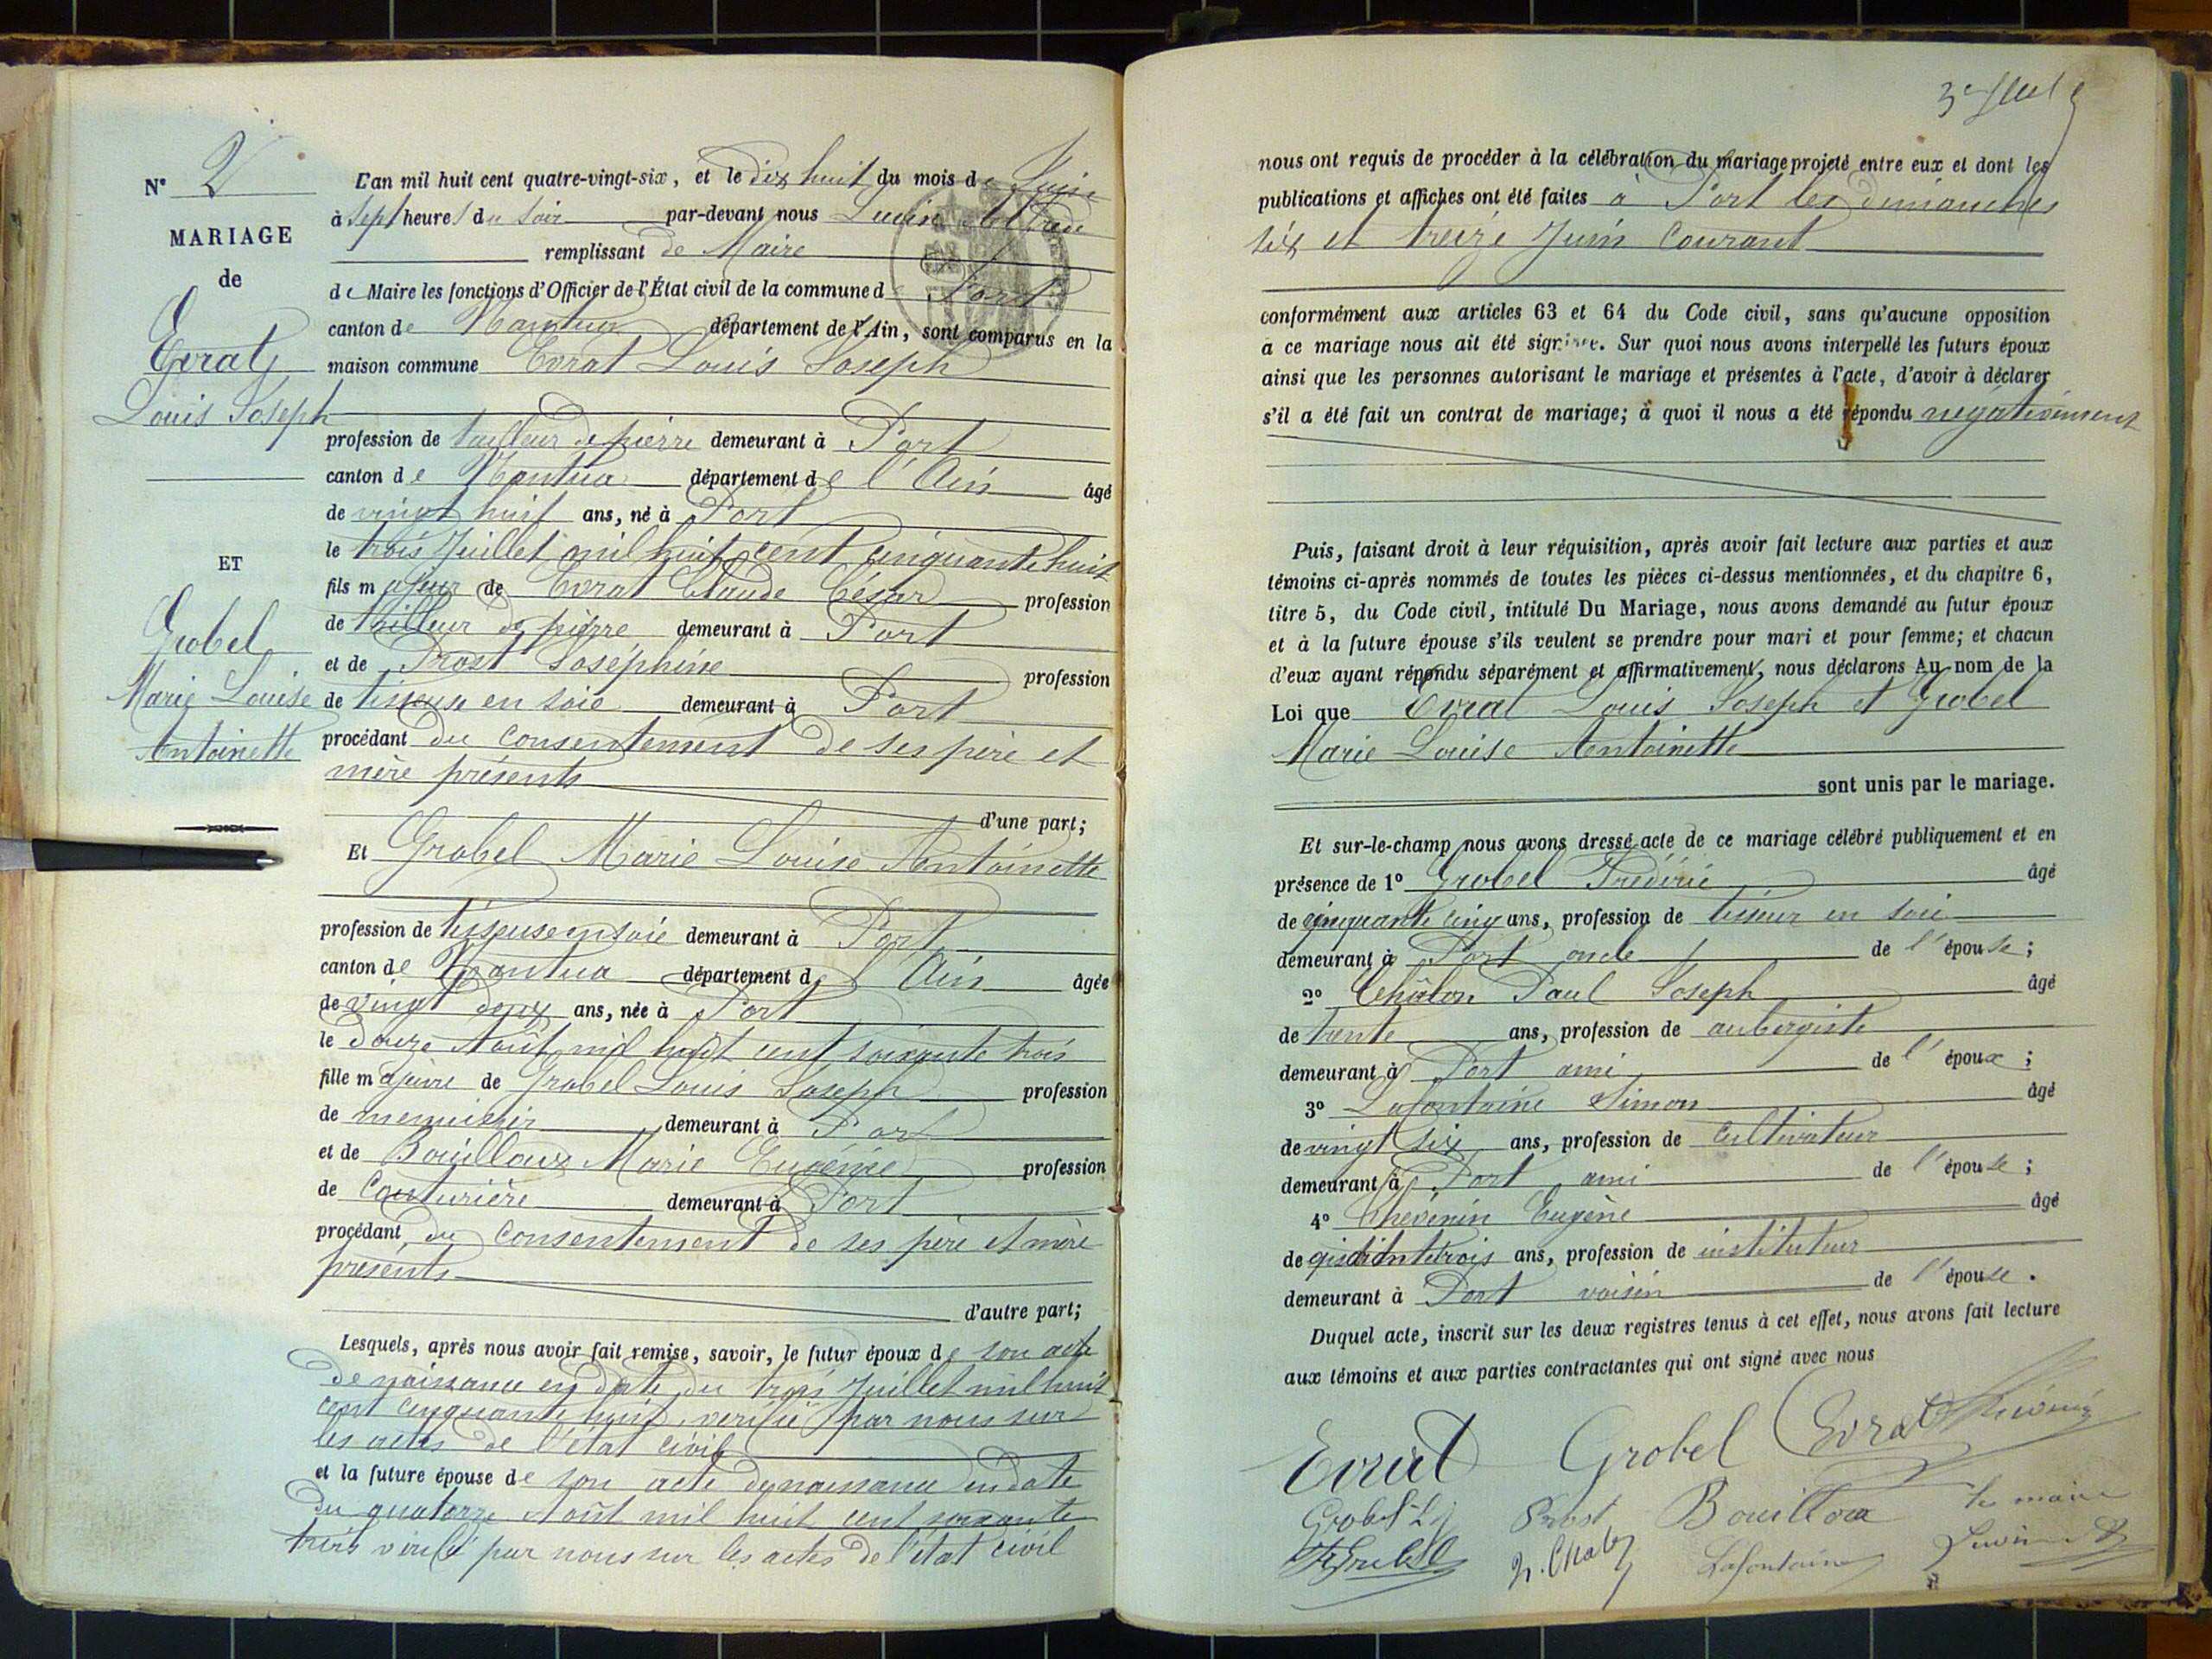 N° 2
MARIAGE
de
Evrat
Louis Joseph
ET
Grobel
Marie Louise
Antoinette
L'an mil huit cent quatre-vingt-six, et le dix huit du mois de Juin
à sept heures du soir par-devant nous Lucien Alfred
remplissant de Maire
de Maire les fonctions d'Officier de l'État civil de la commune de Port
canton de Nantua département de l'Ain, sont comparus en la
maison commune Evrat Louis Joseph
profession de tailleur de pierre demeurant à Port
canton de Nantua département de l'Ain âgé
de vingt huit ans, né à Port
le trois Juillet mil huit cent cinquante huit
fils majeur de Evrat Claude César profession
de tailleur de pierre demeurant à Port
et de Prost Joséphine profession
de tisseuse en soie demeurant à Port
procédant du consentement de ses père et
mère présents
d'une part;
Et Grobel Marie Louise Antoinette
profession de tisseuse en soie demeurant à Port
canton de Nantua département de l'Ain âgée
de vingt deux ans, née à Port
le douze Août mil huit cent soixante trois
fille majeure de Grobel Louis Joseph profession
de menuisier demeurant à Port
et de Bouilloux Marie Eugénie profession
de couturière demeurant à Port
procédant du consentement de ses père et mère
présents
d'autre part;
Lesquels, après nous avoir fait remise, savoir, le futur époux de son acte
de naissance en date du trois Juillet mil huit
cent cinquante huit, vérifié par nous sur
les actes de l'état civil
et la future épouse de son acte de naissance en date
du quatorze Août mil huit cent soixante
trois vérifié par nous sur les actes de l'état civil
nous ont requis de procéder à la célébration du mariage projeté entre eux et dont les
publications et affiches ont été faites à Port les dimanches
six et treize Juin courant
conformément aux articles 63 et 64 du Code civil, sans qu'aucune opposition
à ce mariage nous ait été signifiée. Sur quoi nous avons interpellé les futurs époux
ainsi que les personnes autorisant le mariage et présentes à l'acte, d'avoir à déclarer
s'il a été fait un contrat de mariage; à quoi il nous a été répondu négativement
Puis, faisant droit à leur réquisition, après avoir fait lecture aux parties et aux
témoins ci-après nommés de toutes les pièces ci-dessus mentionnées, et du chapitre 6,
titre 5, du Code civil, intitulé Du Mariage, nous avons demandé au futur époux
et à la future épouse s'ils veulent se prendre pour mari et pour femme; et chacun
d'eux ayant répondu séparément et affirmativement, nous déclarons Au nom de la
Loi que Evrat Louis Joseph et Grobel
Marie Louise Antoinette
sont unis par le mariage.
Et sur-le-champ nous avons dressé acte de ce mariage célébré publiquement et en
présence de 1° Grobel Frédéric âgé
de cinquante cinq ans, profession de tisseur en soie
demeurant à Port oncle de l'épouse;
2° Châlon Paul Joseph âgé
de trente ans, profession de aubergiste
demeurant à Port ami de l'époux;
3° Lafontaine Simon âgé
de vingt six ans, profession de cultivateur
demeurant à Port ami de l'épouse;
4° Thévenin Eugène âgé
de ans, profession de instituteur
demeurant à Port voisin de l'épouse.
Duquel acte, inscrit sur les deux registres tenus à cet effet, nous avons fait lecture
aux témoins et aux parties contractantes qui ont signé avec nous
Evrat Grobel Evrat Thévenin
Grobel L J Prost Bouilloux le maire
Lafontaine